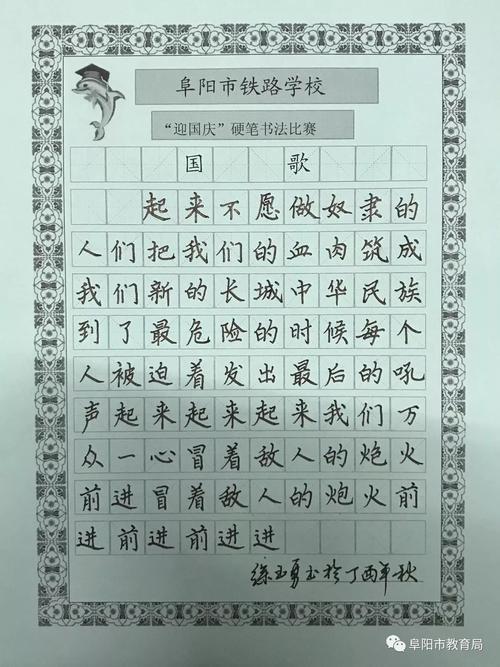 阜阳市铁路学校
“迎国庆”硬笔书法比赛
国歌
起来不愿做奴隶的
人们把我们的血肉筑成
我们新的长城中华民族
到了最危险的时候每个
人被迫着发出最后的吼
声起来起来起来我们万
众一心冒着敌人的炮火
前进冒着敌人的炮火前
进前进前进进
练玉勇书于丁酉年秋
阜阳市教育局